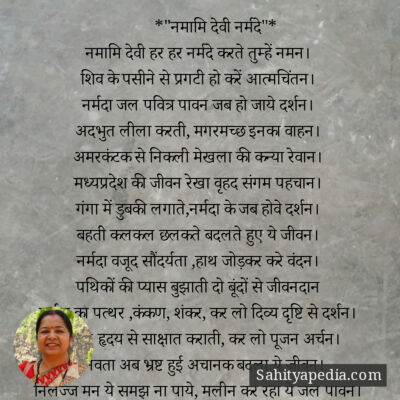 *"नमामि देवी नर्मदे"*
नमामि देवी हर हर नर्मदे करते तुम्हें नमन।
शिव के पसीने से प्रगटी हो करें आत्मचिंतन।
नर्मदा जल पवित्र पावन जब हो जाये दर्शन।
अदभुत लीला करती, मगरमच्छ इनका वाहन।
अमरकंटक से निकली मेखला की कन्या रेवान।
मध्यप्रदेश की जीवन रेखा वृहद संगम पहचान।
गंगा में डुबकी लगाते,नर्मदा के जब होवे दर्शन।
बहती कलकल छलकते बदलते हुए ये जीवन।
नर्मदा वजूद सौंदर्यता ,हाथ जोड़कर करे वंदन।
पथिकों की प्यास बुझाती दो बूंदों से जीवनदान
का पत्थर ,कंकण, शंकर, कर लो दिव्य दृष्टि से दर्शन।
हृदय से साक्षात कराती, कर लो पूजन अर्चन।
अब भ्रष्ट हुई अचानक
मन ये समझ ना पाये, मलीन कर रहा ये जल पावन।
Sahityapedia.com